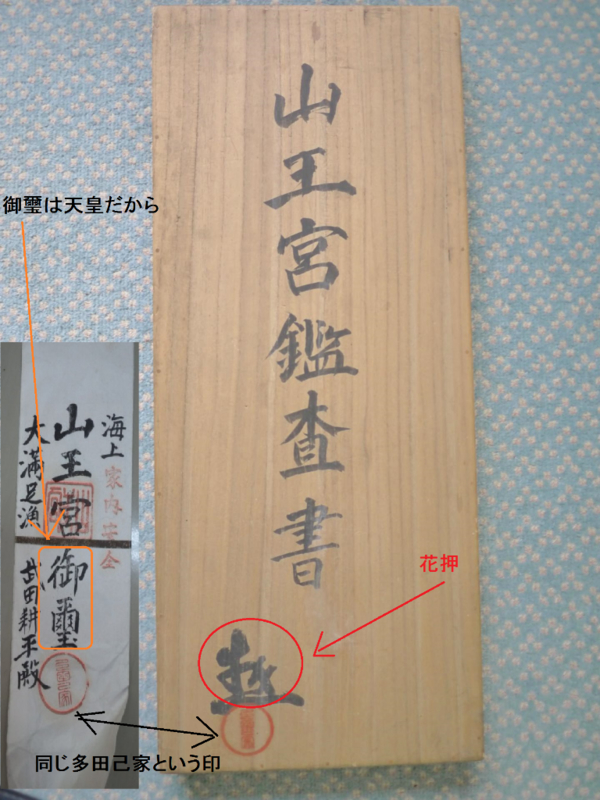 山王宮鑑査書
花押
御璽は天皇だから
海上
家内安全
山王宮御璽
大満足漁
武田耕平殿
同じ多田己家という印